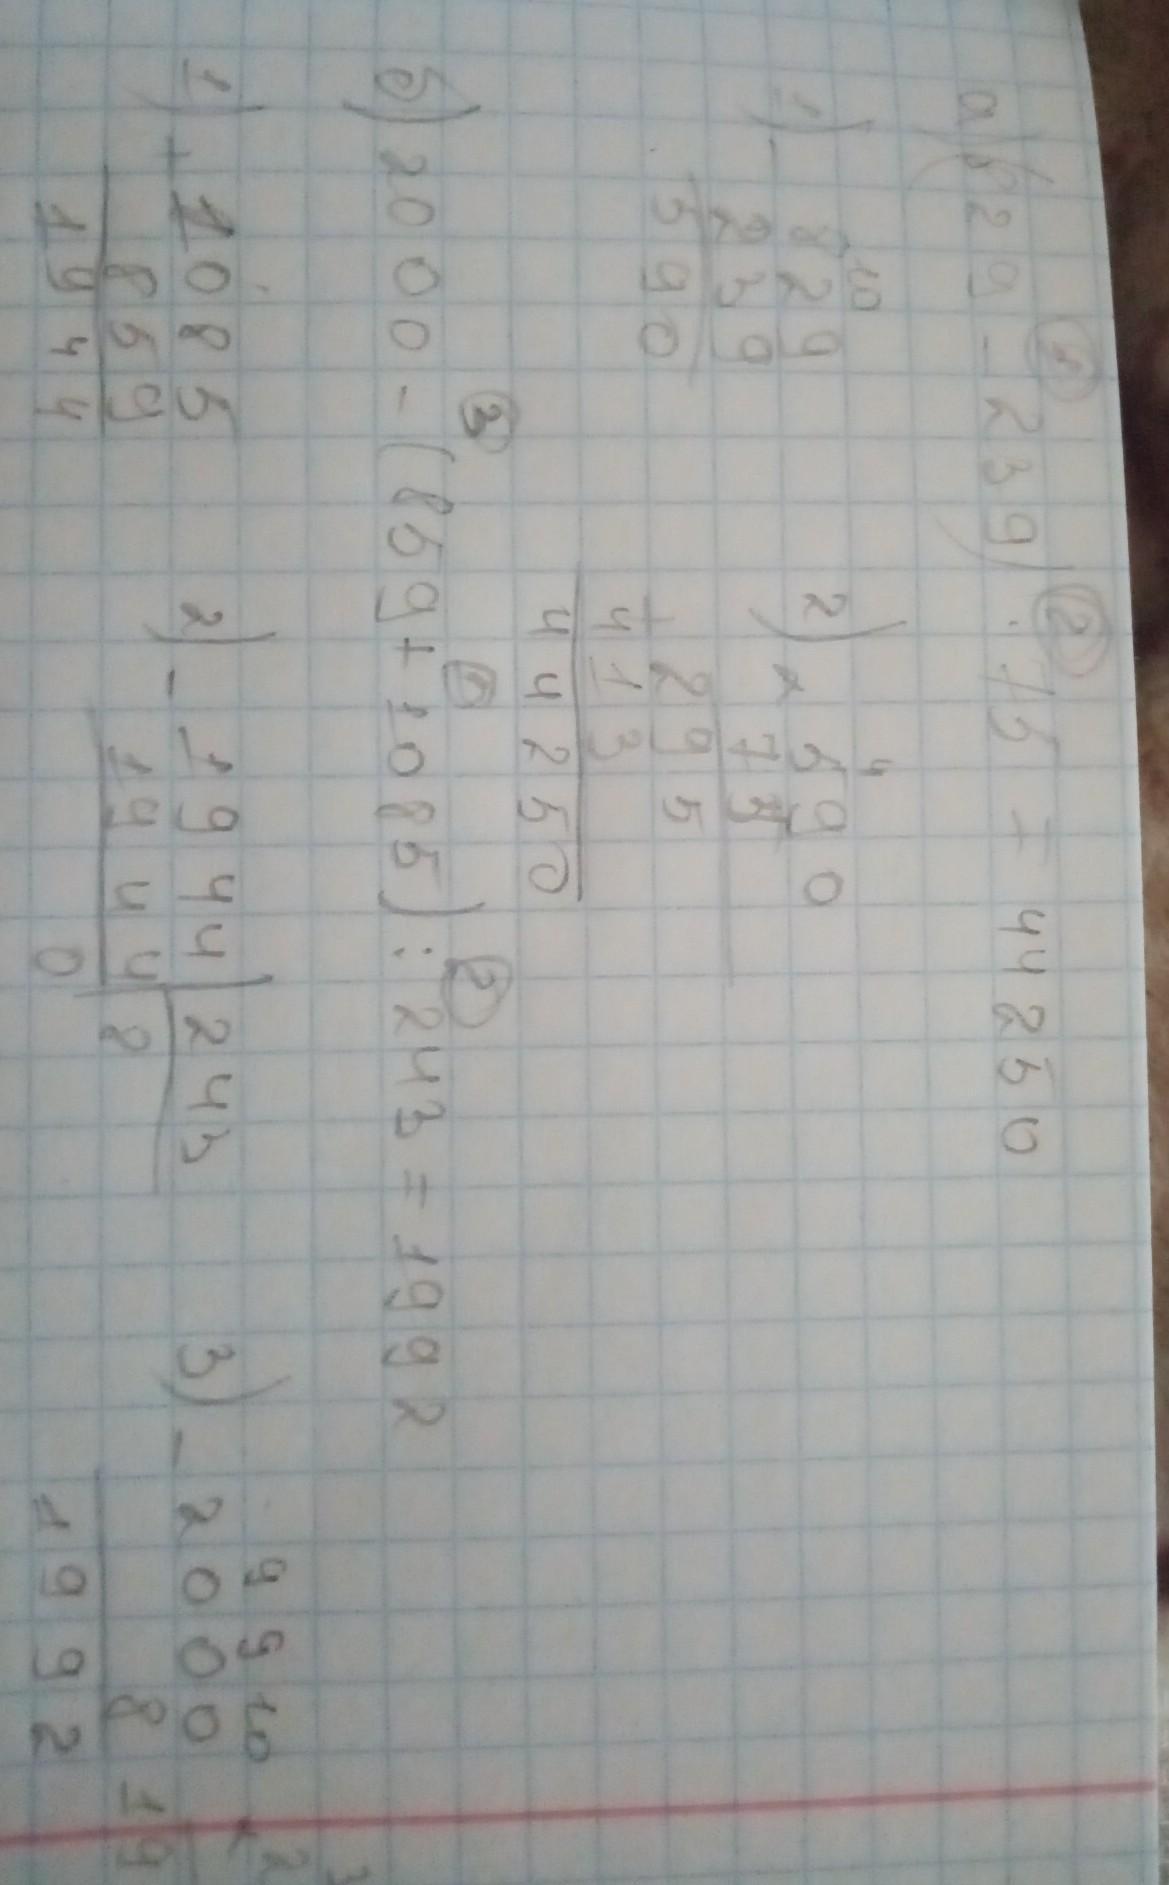 ① ②
а) (829 - 239) · 75 = 44250
10
1) - 829
239
590
4
2) × 590
75
295
+ 413
44250
③ ① ②
б) 2000 - (859 + 1085) : 243 = 1992
1) + 1085
859
1944
2) - 1944 | 243
1944 | 8
0
9 9 10
3) - 2000
8
1992